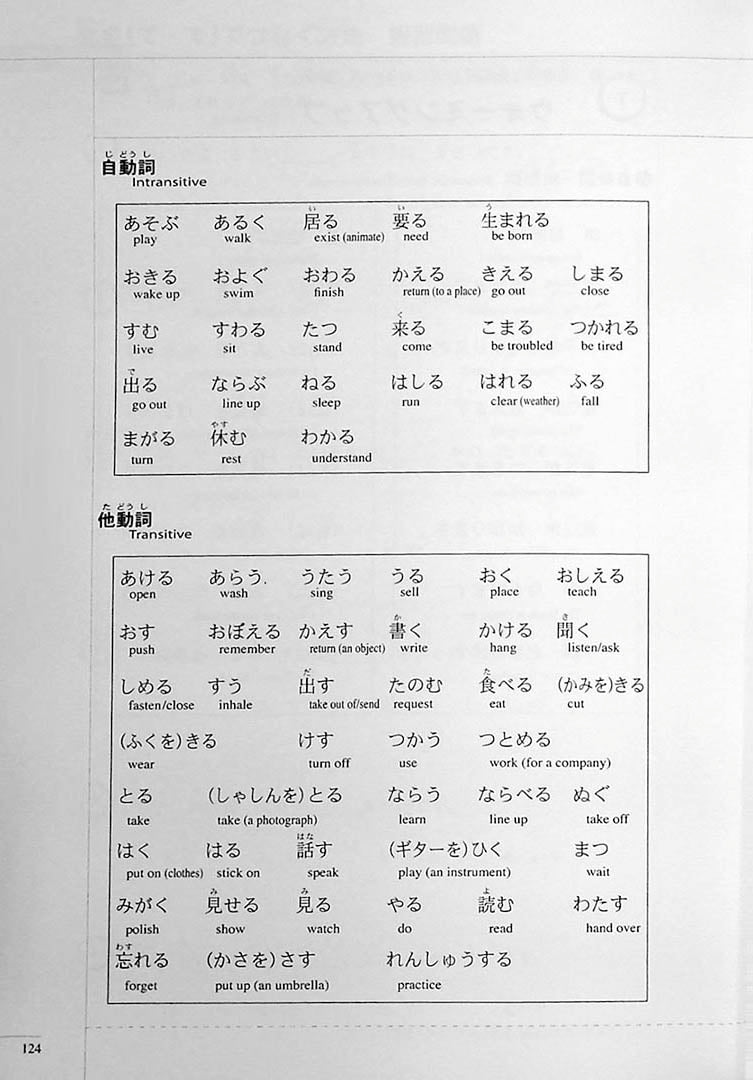 じどうし
自動詞
Intransitive
い い う
あそぶ あるく 居る 要る 生まれる
play walk exist (animate) need be born
おきる およぐ おわる かえる きえる しまる
wake up swim finish return (to a place) go out close
く
すむ すわる たつ 来る こまる つかれる
live sit stand come be troubled be tired
で
出る ならぶ ねる はしる はれる ふる
go out line up sleep run clear (weather) fall
やす
まがる 休む わかる
turn rest understand
たどうし
他動詞
Transitive
あける あらう. うたう うる おく おしえる
open wash sing sell place teach
か き
おす おぼえる かえす 書く かける 聞く
push remember return (an object) write hang listen/ask
だ た
しめる すう 出す たのむ 食べる (かみを)きる
fasten/close inhale take out of/send request eat cut
(ふくを)きる けす つかう つとめる
wear turn off use work (for a company)
とる (しゃしんを)とる ならう ならべる ぬぐ
take take (a photograph) learn line up take off
はな
はく はる 話す (ギターを)ひく まつ
put on (clothes) stick on speak play (an instrument) wait
み み よ
みがく 見せる 見る やる 読む わたす
polish show watch do read hand over
わす
忘れる (かさを)さす れんしゅうする
forget put up (an umbrella) practice
124